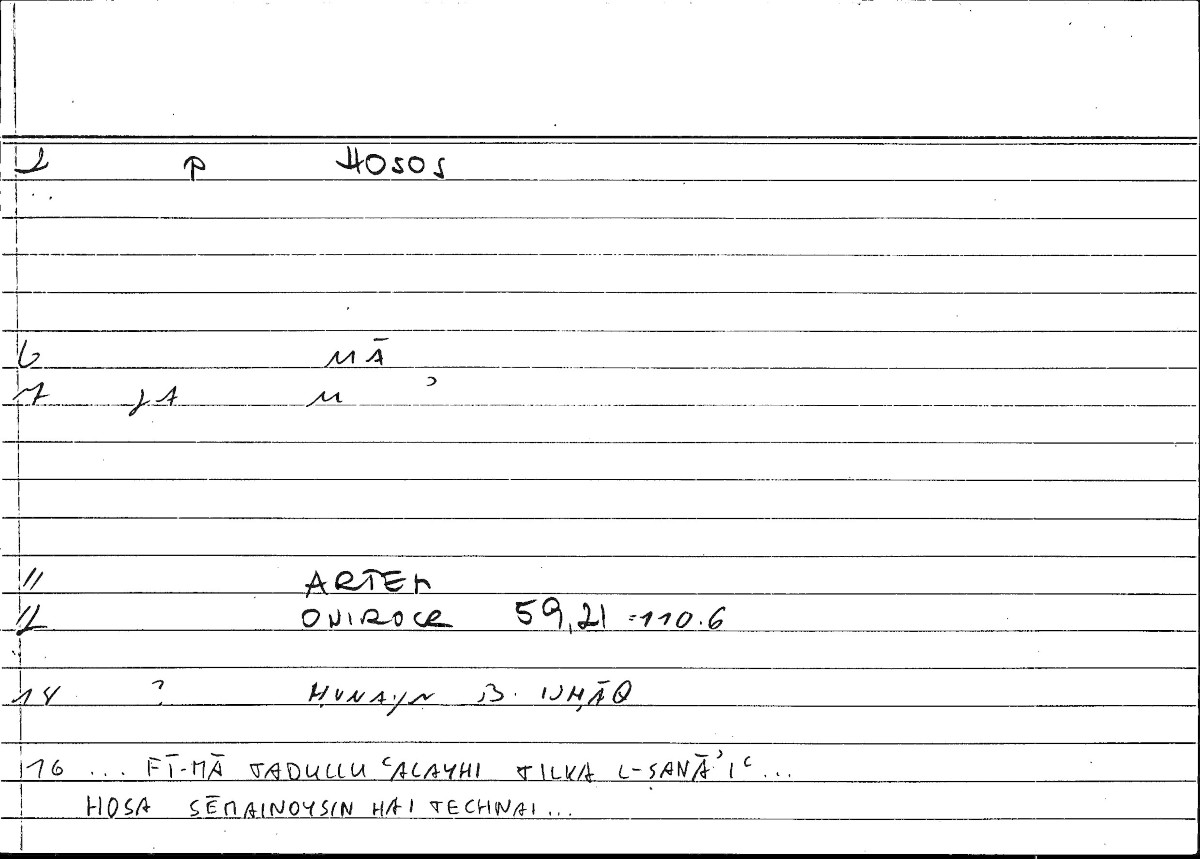 1 P HOSOS
6 MĀ
7 JA M ʾ
11 ARTEM
12 ONIROCR 59,21 =110.6
14 ? ḤUNAYN B. ISḤĀQ
16 ... FĪ-MĀ TADULLU ʿALAYHI TILKA L-ṢANĀʾIʿ...
HOSA SĒMAINOYSIN HAI TECHNAI...